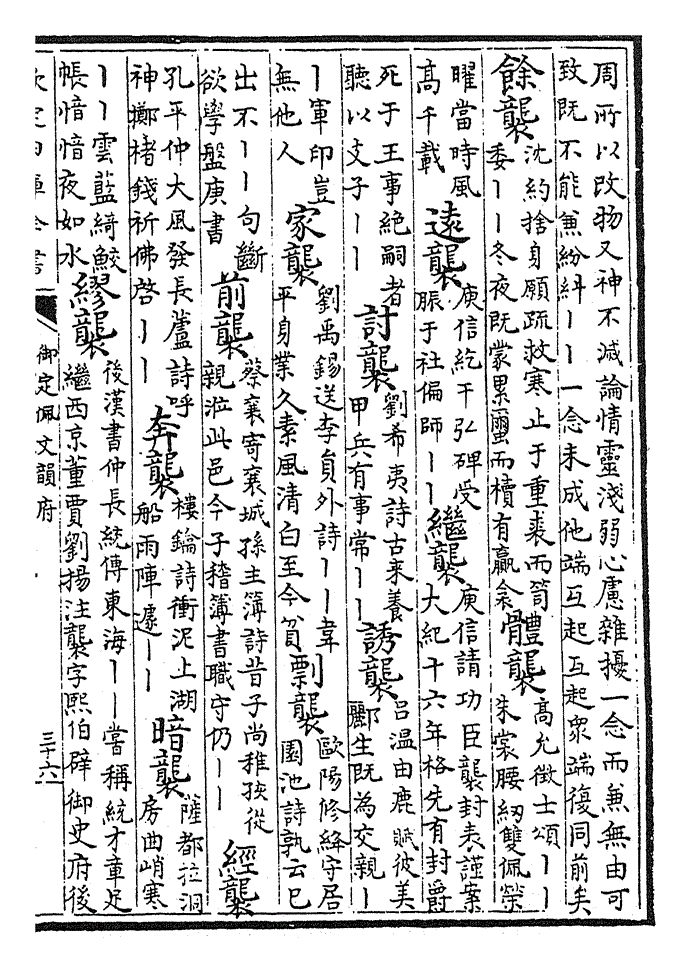 周所以改物又神不滅論情靈淺弱心慮雜擾一念而兼無由可
致既不能兼紛糾丨丨一念未成他端互起互起衆端復同前矣
餘襲
沈約捨身願疏救寒止于重裘而笥
委丨丨冬夜既蒙累璽而櫝有贏衾
體襲
高允徵士頌丨丨
朱裳腰紉雙佩榮
曜當時風
高千載
遠襲
庾信紇干弘碑受
脤于社偏師丨丨
繼襲
庾信請功臣襲封表謹案
大紀十六年格先有封爵
死于王事絕嗣者
聽以支子丨丨
討襲
劉希夷詩古來養
甲兵有事常丨丨
誘襲
吕温由鹿賦彼美
酈生既為交親丨
丨軍印豈
無他人
家襲
劉禹錫送李員外詩丨丨韋
平身業久素風清白至今貧
剽襲
歐陽修絳守居
園池詩孰云已
出不丨丨句斷
欲學盤庚書
前襲
蔡襄寄襄城孫主簿詩昔子尚稚孩從
親涖此邑今子稽簿書職守仍丨丨
經襲
孔平仲大風發長蘆詩呼
神擲楮錢祈佛啓丨丨
奔襲
樓鑰詩衝泥上湖
船雨陣遽丨丨
暗襲
薩都拉洞
房曲峭寒
丨丨雲藍綺鮫
帳愔愔夜如水
繆襲
後漢書仲長統傳東海丨丨嘗稱統才章足
繼西京董賈劉揚注襲字熙伯辟御史府後
欽定四庫全書
御定佩文韻府
三十六